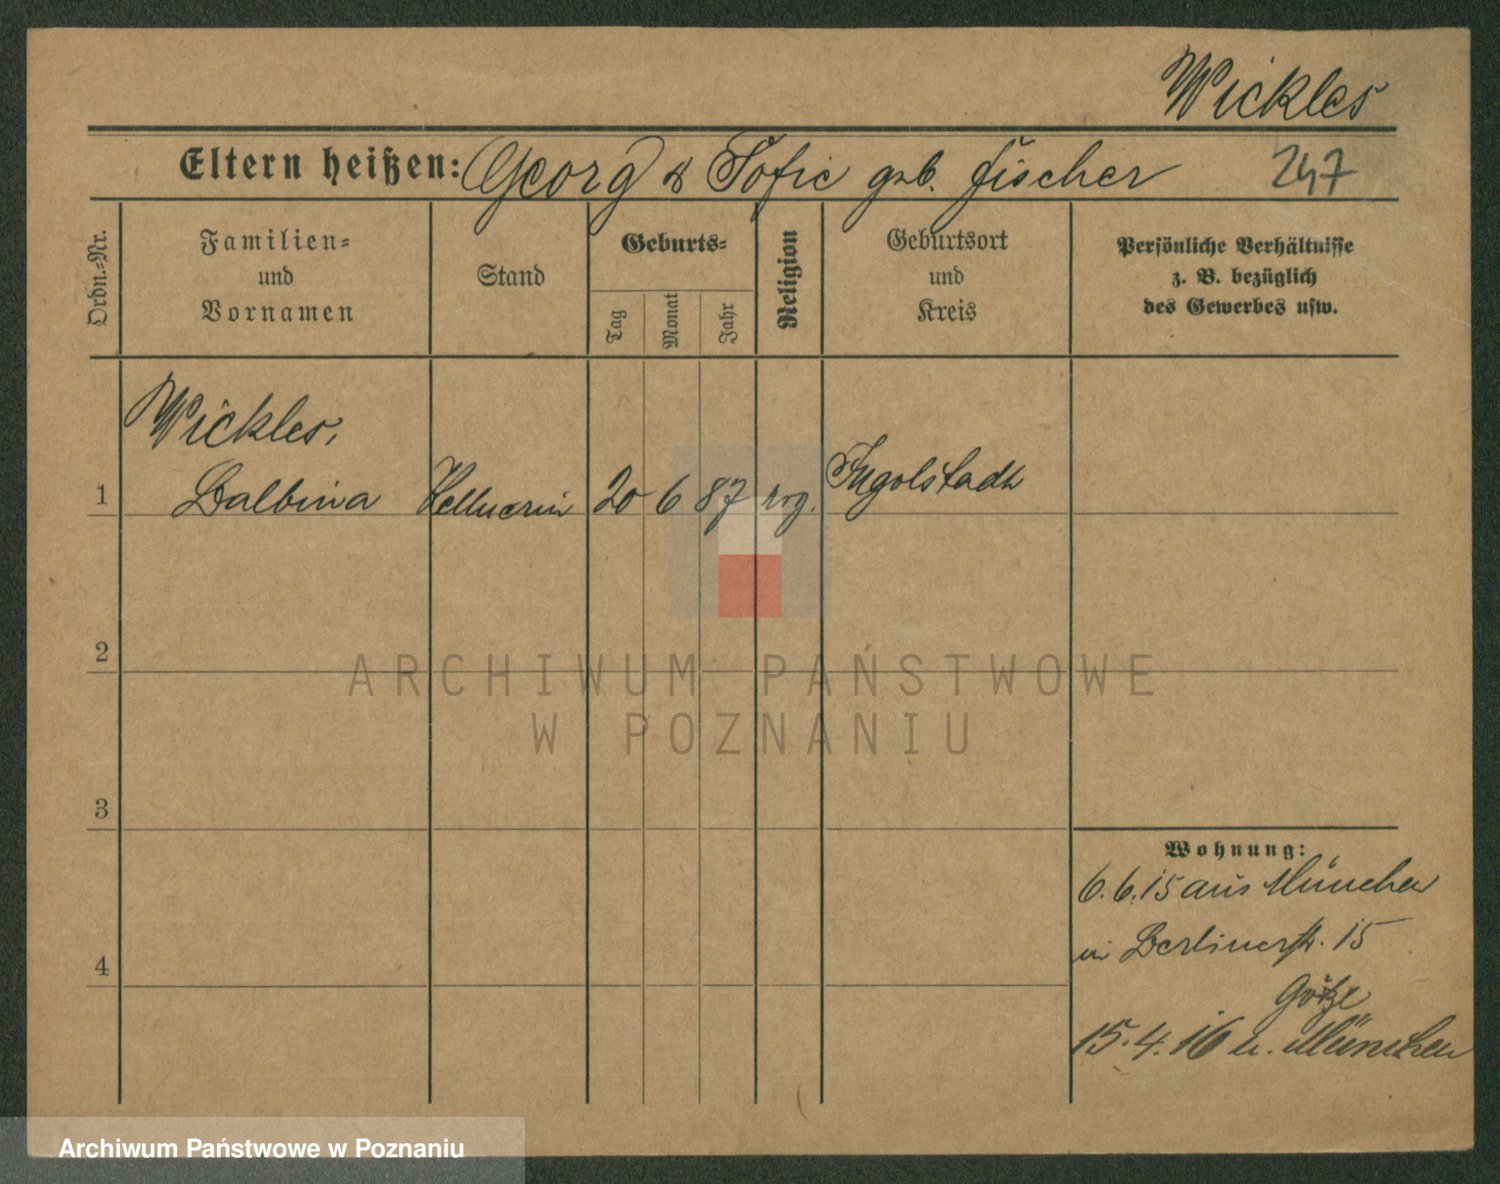 Wickles
Eltern heißen: Georg & Sofie geb. Fischer 247
Ordn.-Nr.
Familien-
und
Vornamen
Stand
Geburts-
Tag
Monat
Jahr
Religion
Geburtsort
und
Kreis
Persönliche Verhältnisse
z. B. bezüglich
des Gewerbes usw.
Wickles,
1 Balbina Kellnerin 20 6 87 Ingolstadt
2
ARCHIWUM PAŃSTWOWE
W POZNANIU
3
Wohnung:
6.6.15 aus München
in Berlinerstr. 15
4
Götze
15.4.16 n. München
Archiwum Państwowe w Poznaniu